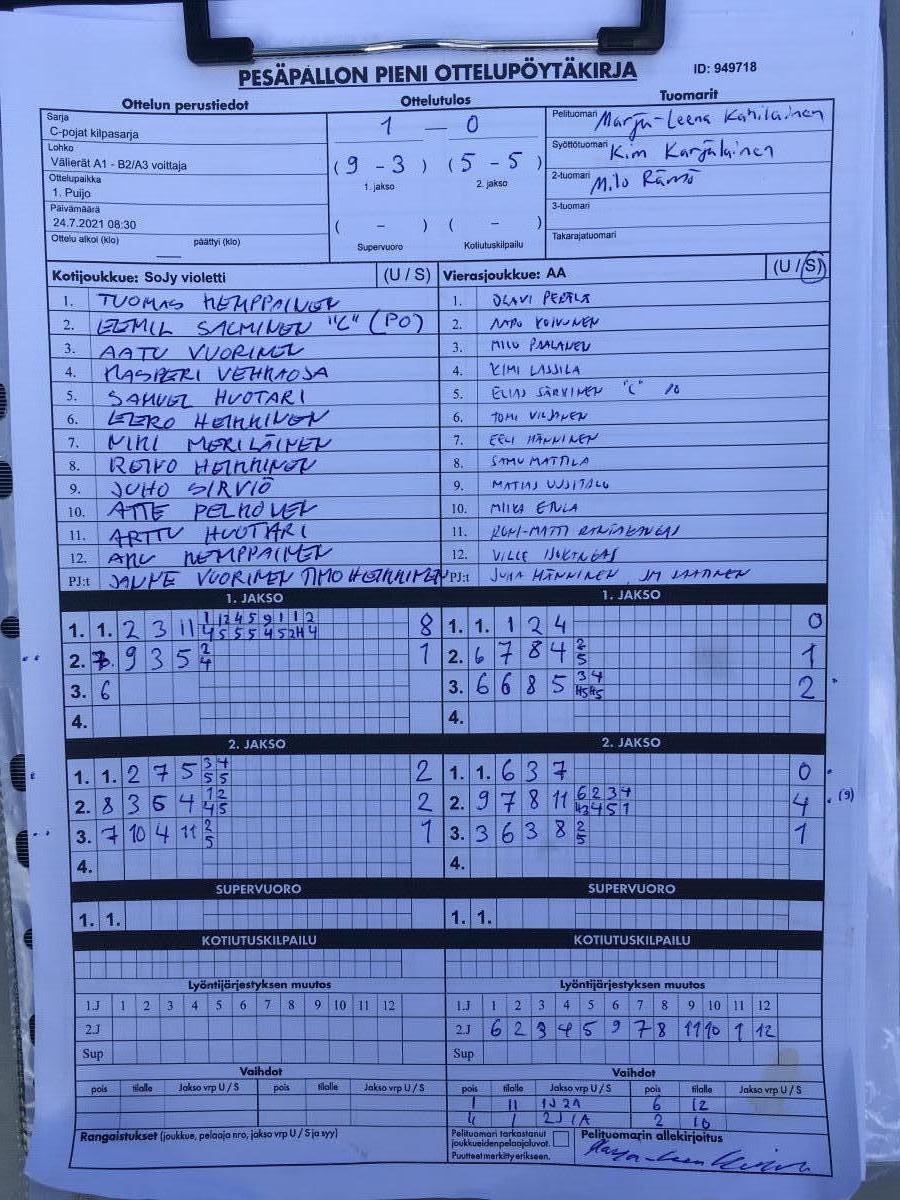 PESÄPALLON PIENI OTTELUPÖYTÄKIRJA
ID: 949718
Ottelun perustiedot
Sarja
C-pojat kilpasarja
Lohko
Välierät A1 - B2/A3 voittaja
Ottelupaikka
1. Puijo
Päivämäärä
24.7.2021 08:30
Ottelu alkoi (klo) päättyi (klo)
Ottelutulos
1 — 0
(9 - 3) (5 - 5)
1. jakso 2. jakso
( - ) ( - )
Supervuoro Kotiutuskilpailu
Tuomarit
Pelituomari Marja-Leena Kahilainen
Syöttötuomari Kim Karjalainen
2-tuomari Milo Rämö
3-tuomari
Takarajatuomari
Kotijoukkue: SoJy violetti (U / S)
1. TUOMAS KEMPPAINEN
2. EEMIL SALMINEN "C" (PO)
3. AATU VUORINEN
4. KASPERI VEHKAOJA
5. SAMUEL HUOTARI
6. EERO HEIKKINEN
7. NIKI MERILÄINEN
8. REIKO HEIKKINEN
9. JUHO SIRVIÖ
10. ATTE PELKONEN
11. ARTTU HUOTARI
12. KEMPPAINEN
PJ:t JANNE VUORINEN TIMO HEIKKINEN
Vierasjoukkue: AA (U / S)
1. OLAVI PERÄLÄ
2. AAPO KOIVUNEN
3. MILO PAALANEN
4. KIMI LASSILA
5. ELIAS SÄRKINEN "C"
6. TOMI VILJANEN
7. EELI HÄNNINEN
8. SAMU MATTILA
9. MATIAS UUSITALO
10. MIIKA
11.
12. VILLE
PJ:t JUHA HÄNNINEN
1. JAKSO
1. 1. 2 3 11 8
2. 9 3 5 2 4 1
3. 6
4.
1. JAKSO
1. 1. 1 2 4 0
2. 6 7 8 4 2 5 1
3. 6 6 8 5 2
4.
2. JAKSO
1. 1. 2 7 5 3 4 5 5 2
2. 8 3 6 4 1 2 4 5 2
3. 7 10 4 11 2 5 1
4.
2. JAKSO
1. 1. 6 3 7 0
2. 9 7 8 11 6 2 3 4 4 (9)
3. 3 6 3 8 2 5 1
4.
SUPERVUORO
1. 1.
SUPERVUORO
1. 1.
KOTIUTUSKILPAILU
KOTIUTUSKILPAILU
Lyöntijärjestyksen muutos
1.J 1 2 3 4 5 6 7 8 9 10 11 12
2.J
Sup
Lyöntijärjestyksen muutos
1.J 1 2 3 4 5 6 7 8 9 10 11 12
2.J 6 2 3 4 5 9 7 8 11 10 1 12
Sup
Vaihdot
pois tilalle Jakso vrp U / S pois tilalle Jakso vrp U / S
Vaihdot
pois tilalle Jakso vrp U / S pois tilalle Jakso vrp U / S
1 11 1J 2A 6 12
4 1 2J 1A 2 10
Rangaistukset (joukkue, pelaaja nro, jakso vrp U / S ja syy)
Pelituomari tarkastanut
joukkueidenpelaajaluvat.
Puutteet merkitty erikseen.
Pelituomarin allekirjoitus